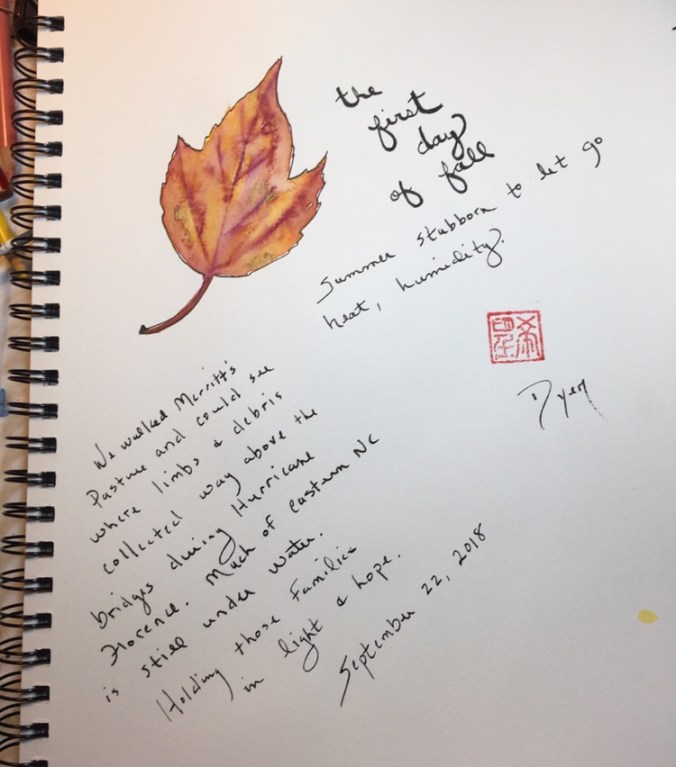 the
first
day
of fall
Summer stubborn to let go
heat, humidity.
希
望
Dyer
We walked Merritt's
Pasture and could see
where limbs & debris
collected way above the
bridges during Hurricane
Florence. Much of eastern NC
is still under water.
Holding those families
in light & hope.
September 22, 2018